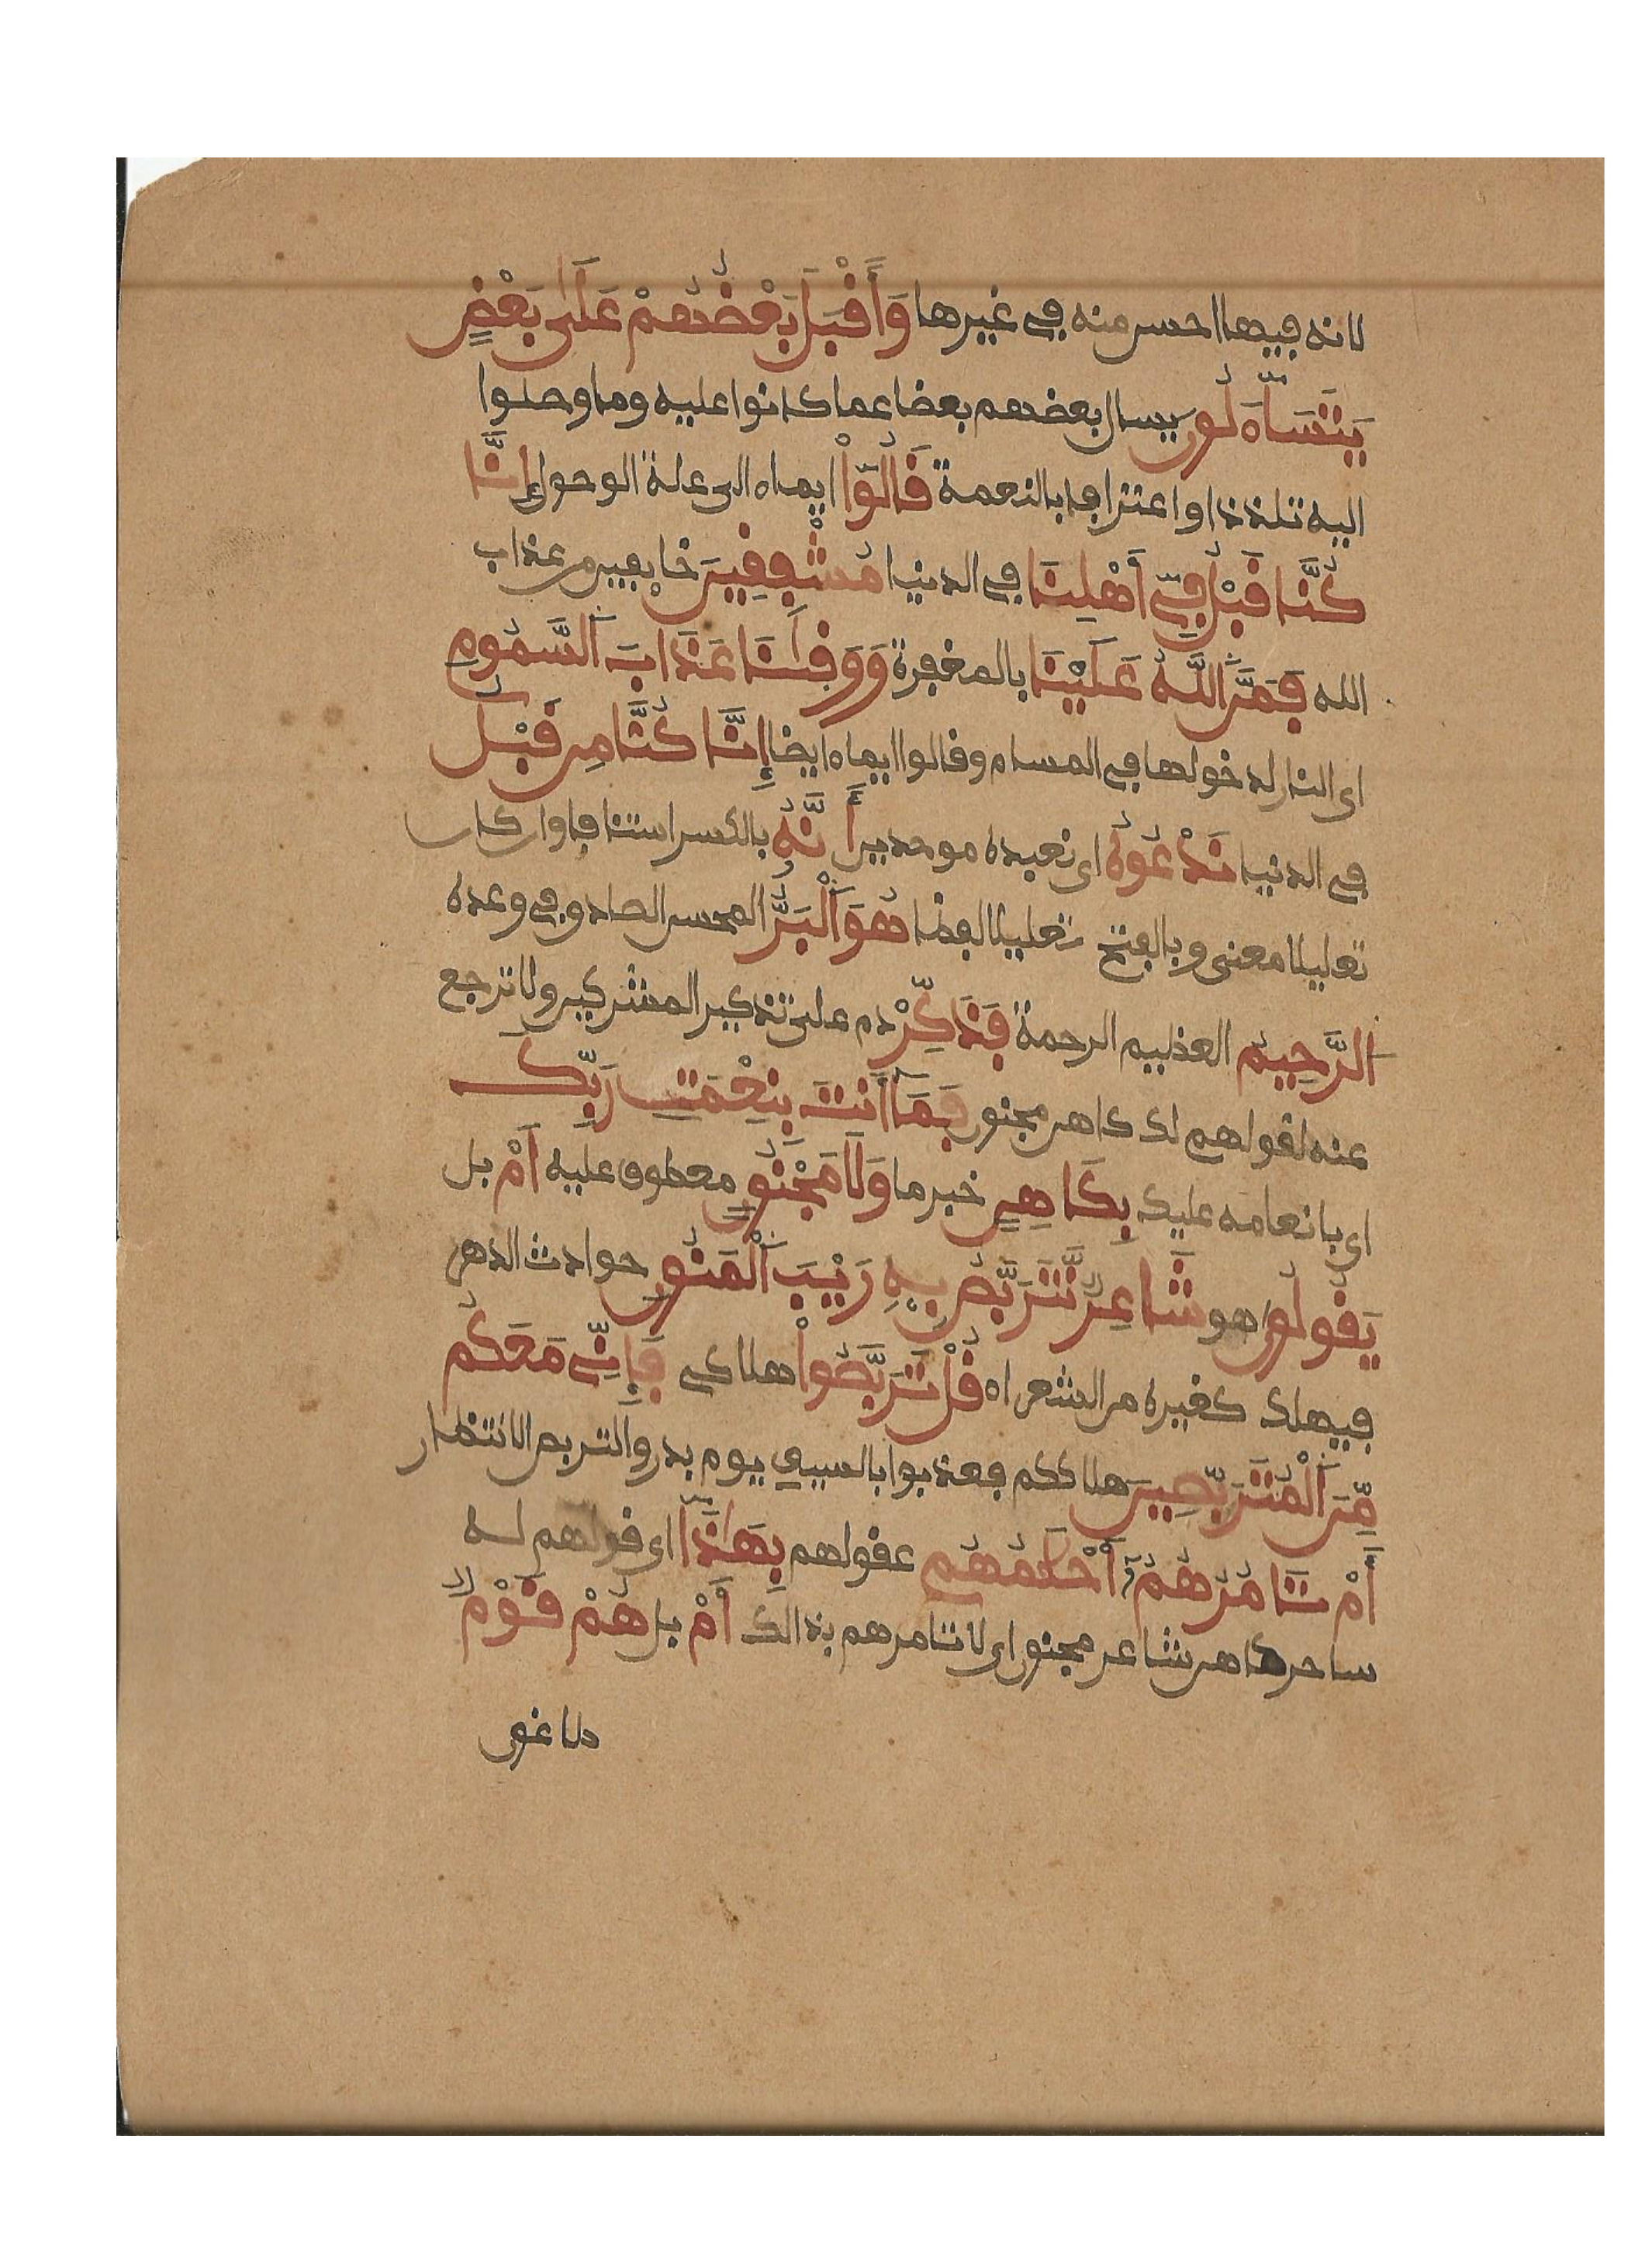 لانه فيها احسن منه في غيرها وَأَقْبَلَ بَعْضُهُمْ عَلَىٰ بَعْضٍ
يَتَسَآءَلُونَ يسال بعضهم بعضا عما كانوا عليه وما وصلوا
اليه تلذذا واعترافا بالنعمة قَالُوٓاْ ايماء الى علة الوصول إِنَّا
كُنَّا قَبْلُ فِيٓ أَهْلِنَا في الدنيا مُشْفِقِينَ خايفين من عذاب
الله فَمَنَّ اَللَّهُ عَلَيْنَا بالمغفرة وَوَقِىٰنَا عَذَابَ اَلسَّمُومِ
اى النار لدخولها في المسام وقالوا ايماء ايضا إِنَّا كُنَّا مِن قَبْلُ
في الدنيا نَدْعُوهُ اى نعبده موحدين أَنَّهُ بالكسر استنافا وان كان
تعليلا معنى وبالفتح تعليلا لفظا هُوَ اَلْبَرُّ المحسن الصادق في وعده
اَلرَّحِيمُ العظيم الرحمة فَذَكِّرْ دم على تذكير المشركين ولا ترجع
عنه لقولهم لك كاهن مجنون فَمَآ أَنتَ بِنِعْمَتِ رَبِّكَ
اى بانعامه عليك بِكَاهِنٍ خبر ما وَلَا مَجْنُونٍ معطوف عليه أَمْ بل
يَقُولُونَ هو شَاعِرٌ نَّتَرَبَّصُ بِهِ رَيْبَ اَلْمَنُونِ حوادث الدهر
فيهلك كغيره من الشعراء قُلْ تَرَبَّصُواْ هلاكي فَإِنِّي مَعَكُم
مِّنَ اَلْمُتَرَبِّصِينَ هلاككم فعذبوا بالسيف يوم بدر والتربص الانتظار
أَمْ تَامُرُهُمُۥٓ أَحْلَٰمُهُم عقولهم بِهَٰذَآ اى قولهم له
ساحر كاهن شاعر مجنون اى لا تامرهم بذالك أَمْ بل هُمْ قَوْمٌ
طاغون